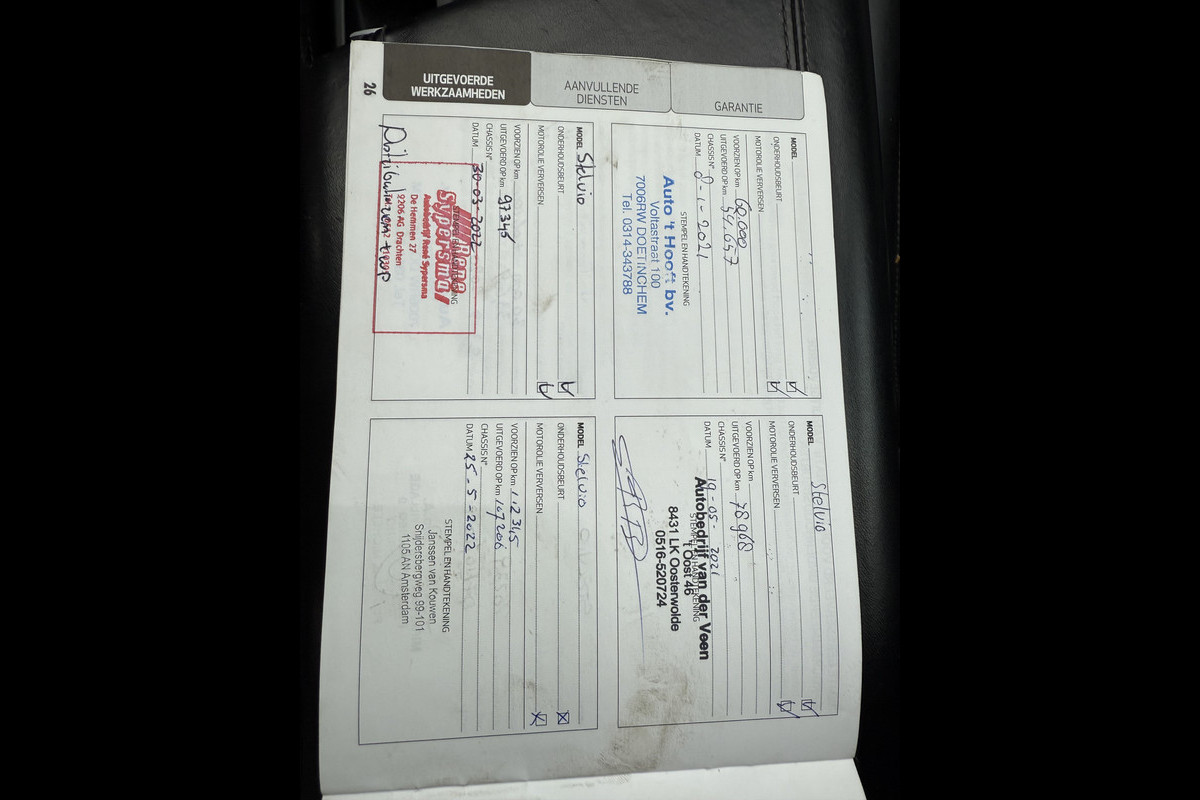 UITGEVOERDE
WERKZAAMHEDEN
AANVULLENDE
DIENSTEN
GARANTIE
26
MODEL
ONDERHOUDSBEURT
MOTOROLIE VERVERSEN
VOORZIEN OP km 60.000
UITGEVOERD OP km 54.657
CHASSIS N°
DATUM 8-1-2021
STEMPEL EN HANDTEKENING
Auto 't Hooft bv.
Voltastraat 100
7006RW DOETINCHEM
Tel. 0314-343788
MODEL Stelvio
ONDERHOUDSBEURT
MOTOROLIE VERVERSEN
VOORZIEN OP km
UITGEVOERD OP km 78968
CHASSIS N°
DATUM 19-05-2021
STEMPEL EN HANDTEKENING
Autobedrijf van der Veen
't Oost 46
8431 LK Oosterwolde
0516-520724
MODEL Stelvio
ONDERHOUDSBEURT
MOTOROLIE VERVERSEN
VOORZIEN OP km
UITGEVOERD OP km 97345
CHASSIS N°
DATUM 30-03-2022
STEMPEL EN HANDTEKENING
Rene
Sypersma
Autobedrijf René Sypersma
De Hemmen 27
9206 AG Drachten
MODEL Stelvio
ONDERHOUDSBEURT
MOTOROLIE VERVERSEN
VOORZIEN OP km 112345
UITGEVOERD OP km 107206
CHASSIS N°
DATUM 25-5-2022
STEMPEL EN HANDTEKENING
Janssen van Kouwen
Snijdersbergweg 99-101
1105 AN Amsterdam